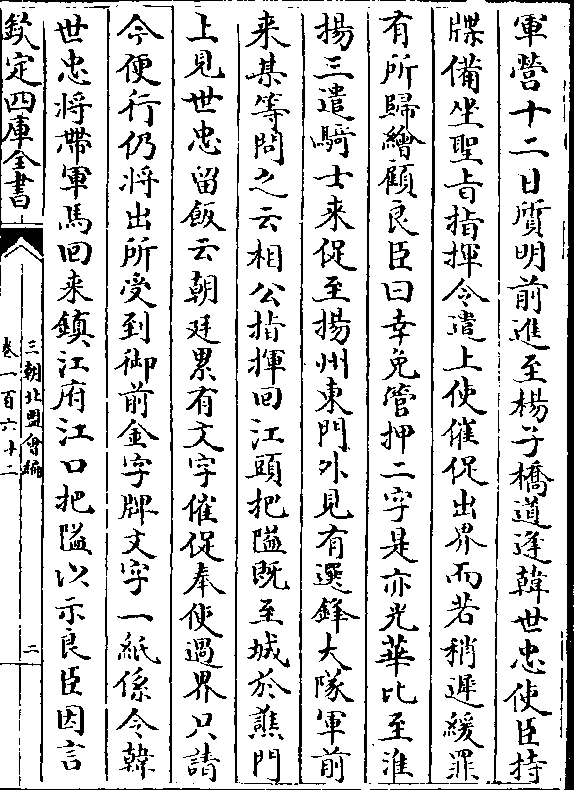 軍營十二日質明前進至楊子橋道逢韓世忠使臣持
牒備坐聖旨指揮令遣上使催促出界而若稍遲緩罪
有所歸繪顧良臣曰幸免管押二字是亦光華比至淮
揚三遣騎士来促至揚州東門外見有選鋒大隊軍前
来某等問之云相公指揮回江頭把隘既至城於譙門
上見世忠留飯云朝廷累有文字催促奉使過界只請
今便行仍將出所受到御前金字牌文字一紙係令韓
世忠将帶軍馬回来鎮江府江口把隘以示良臣因言
欽定四庫全書
三朝北盟會編
卷一百六十二
二